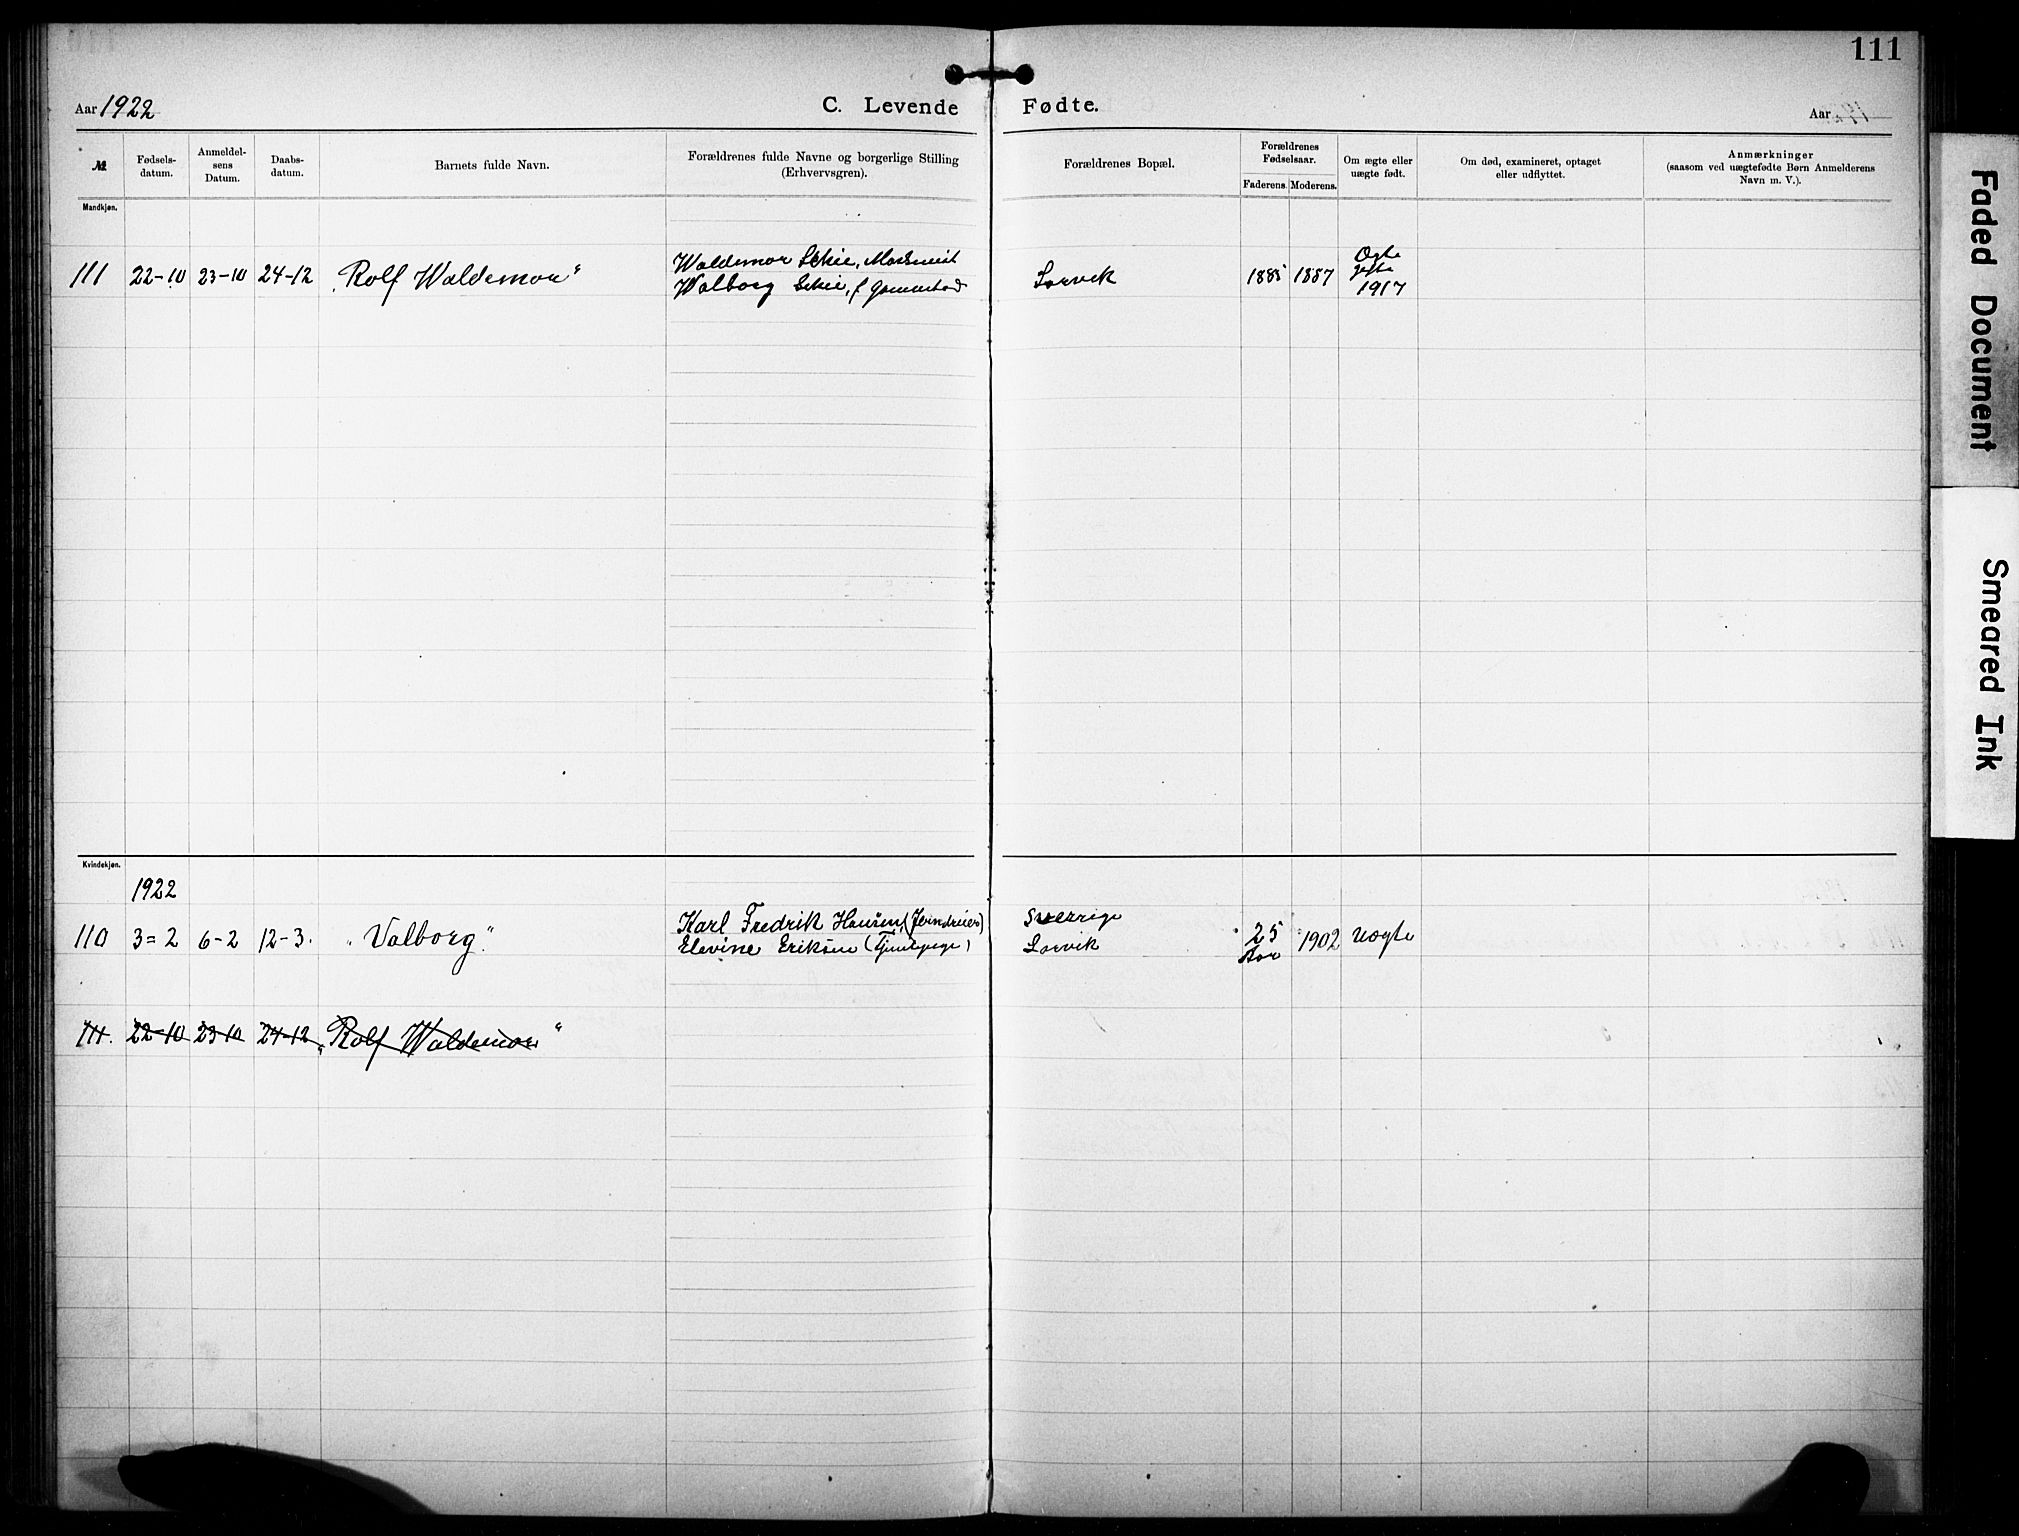 111
Aar 1922
C. Levende Fødte.
Aar
№
Fødsels-
datum.
Anmeldel-
sens
Datum.
Daabs-
datum.
Barnets fulde Navn.
Forældrenes fulde Navne og borgerlige Stilling
(Erhvervsgren).
Forældrenes Bopæl.
Forældrenes
Fødselsaar.
Faderens. Moderens.
Om ægte eller
uægte født.
Om død, examineret, optaget
eller udflyttet.
Anmærkninger
(saasom ved uægtefødte Børn Anmelderens
Navn m. V.).
Mandkjøn.
111 22-10 23-10 24-12 "Rolf Waldemar"
Waldemar Schie,
Walborg Schie, f
1885 1887
Ægte
gifte
1917
Kvindekjøn.
1922
110 3=2 6-2 12-3. "Valborg."
Karl Fredrik Hansen,
Elevine Eriksen
Sverrige
25
Aar
1902 Uægte
111. 22-10 23-10 24-12 "Rolf Waldemar"
Faded Document
Smeared Ink